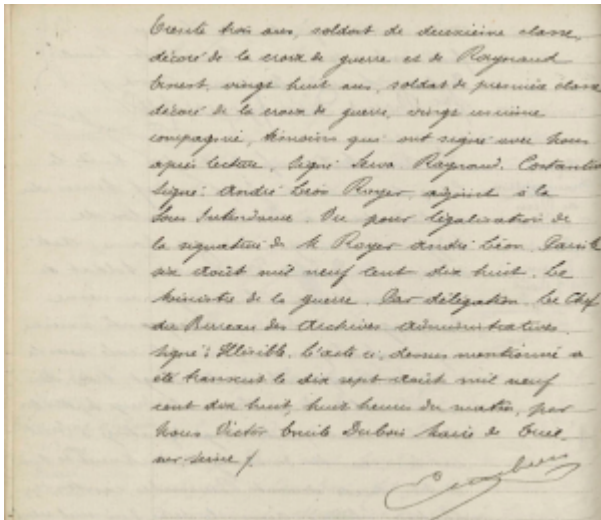 trente trois ans, soldat de deuxième classe,
décoré de la croix de guerre et de Raynaud
Ernest, vingt huit ans, soldat de première classe
décoré de la croix de guerre, vingt unième
compagnie, témoins qui ont signé avec Nous
après lecture. Signé: Raynaud. Costantin
signé: André Léon Royer, adjoint à la
Sous Intendance. Vu pour légalisation de
la signature de M. Royer André Léon. Paris le
six Août mil neuf cent dix huit. Le
Ministre de la guerre. Par délégation. Le Chef
du Bureau des Archives Administratives.
Signé: Illisible. L'acte ci-dessus mentionné a
été transcrit le dix sept Août mil neuf
cent dix huit, huit heures du matin, par
Nous Victor Emile Dubois Maire de
sur-Seine /.